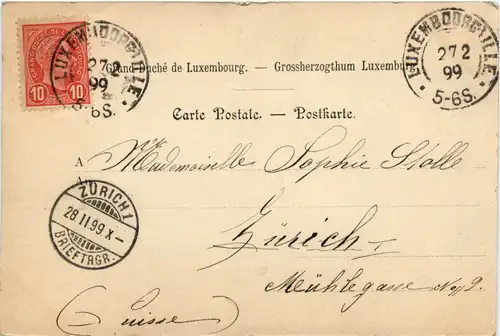 LUXEMBOURG-VILLE
27 2
99
5-6S.
10 10
LUXEMBOURG-VILLE
27 2
99
5-6S.
Grand-Duché de Luxembourg. — Grossherzogthum Luxemburg.
Carte Postale. — Postkarte.
A Mademoiselle Sophie Stolle
Zürich
Mühlegasse
(Suisse)
ZÜRICH 1
28 II 99 X-
BRIEFTRGR.